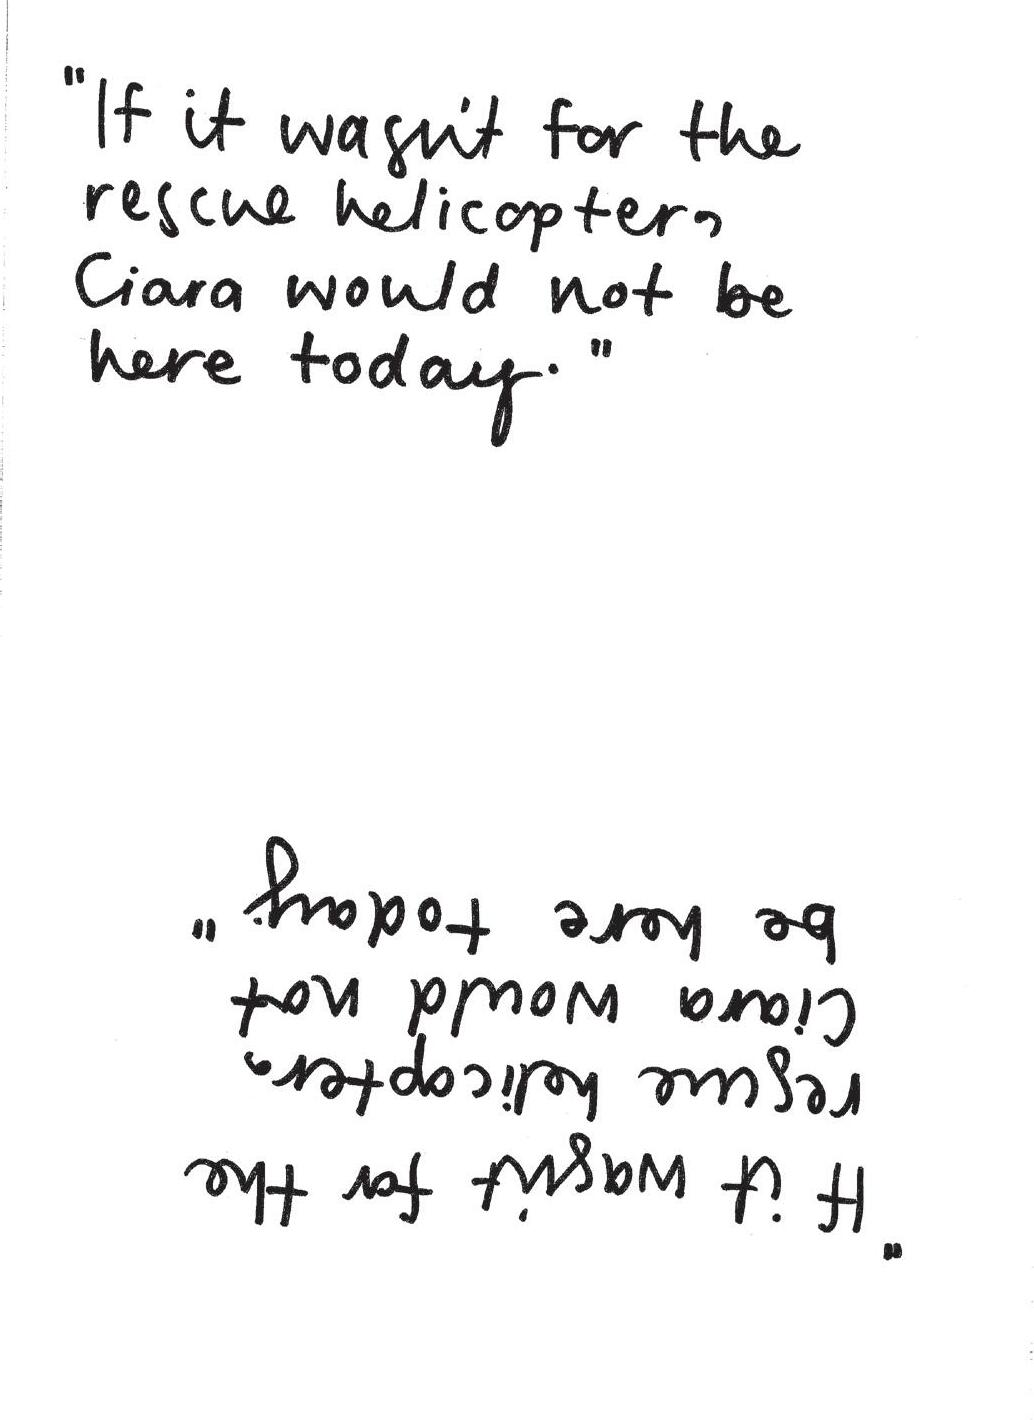 "If it wasn't for the
rescue helicopter,
Ciara would not be
here today."
"If it wasn't for the
rescue helicopter,
Ciara would not
be here today."